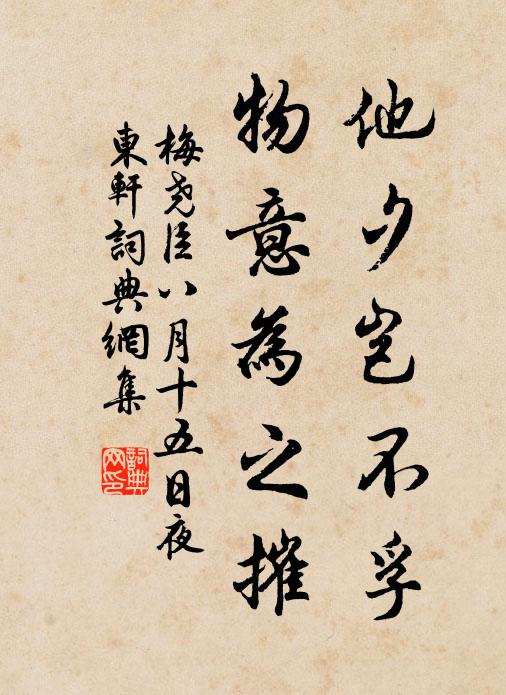 他夕岂不孚
物意為之摧
梅尧臣八月十五日夜
東軒詞典網集
詞典网印